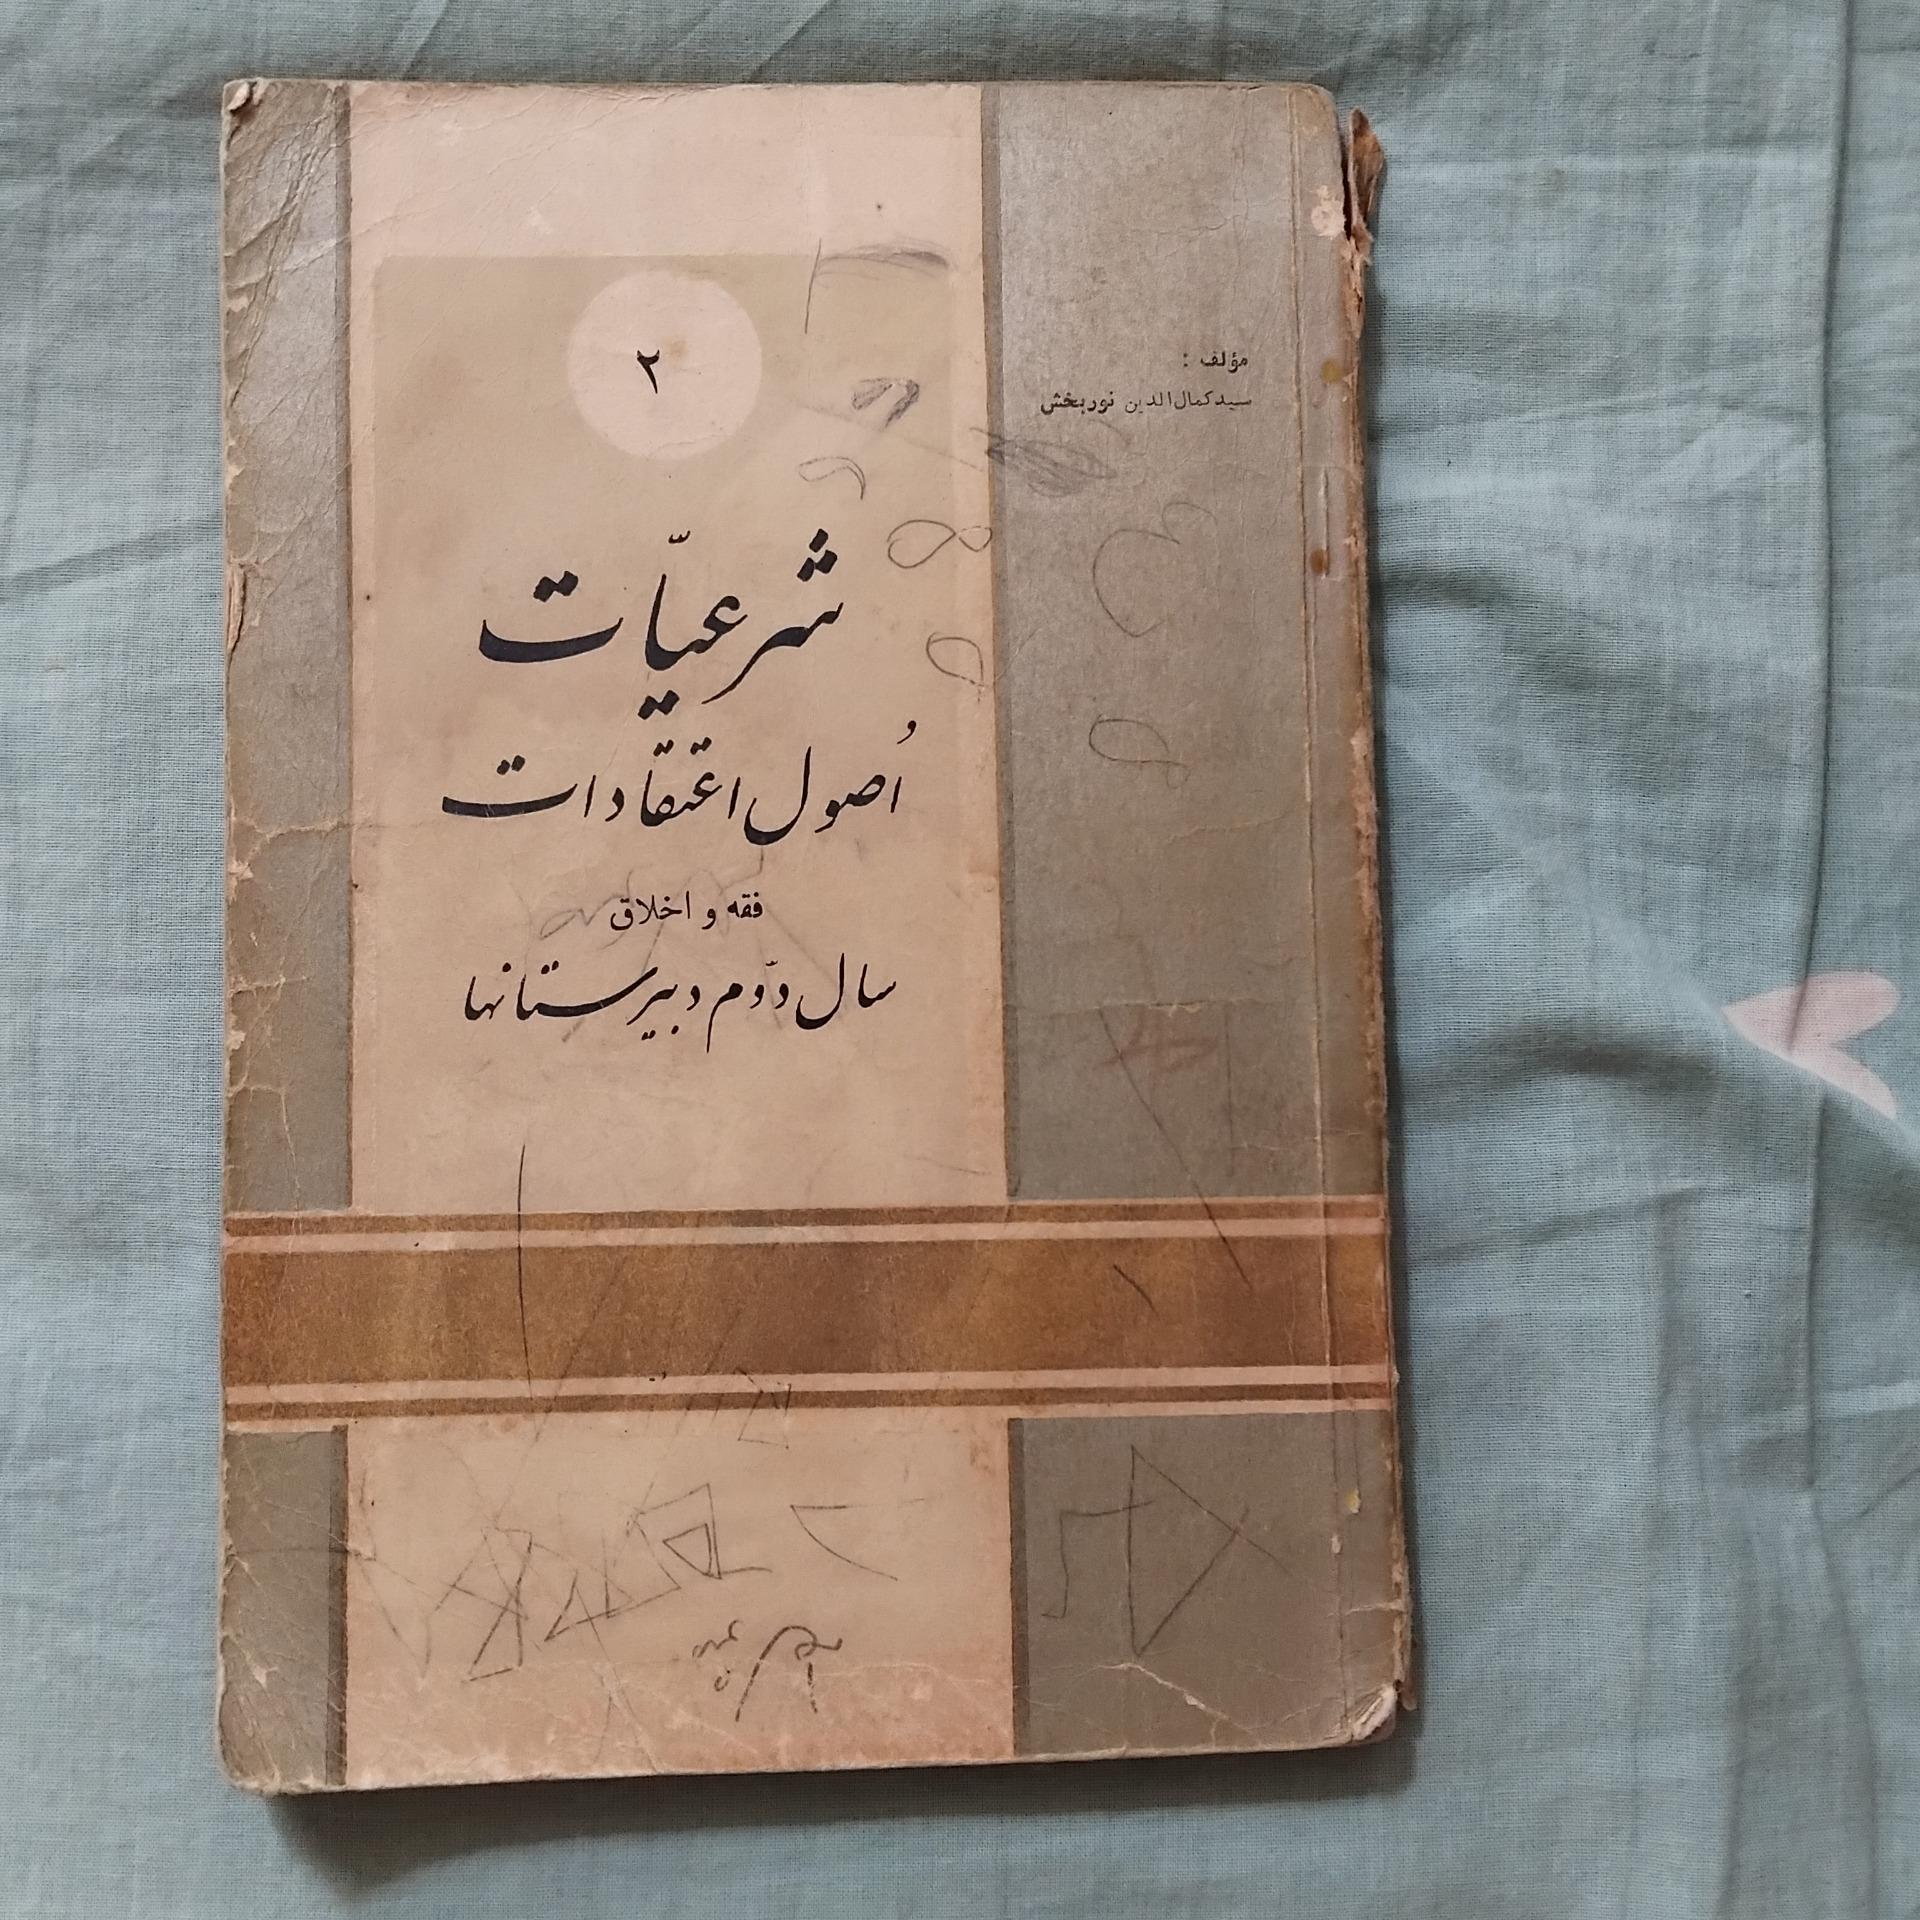 مؤلف :
سید کمال‌الدین نوربخش
۲
شرعیّات
اُصول اعتقادات
فقه و اخلاق
سال دوّم دبیرستانها